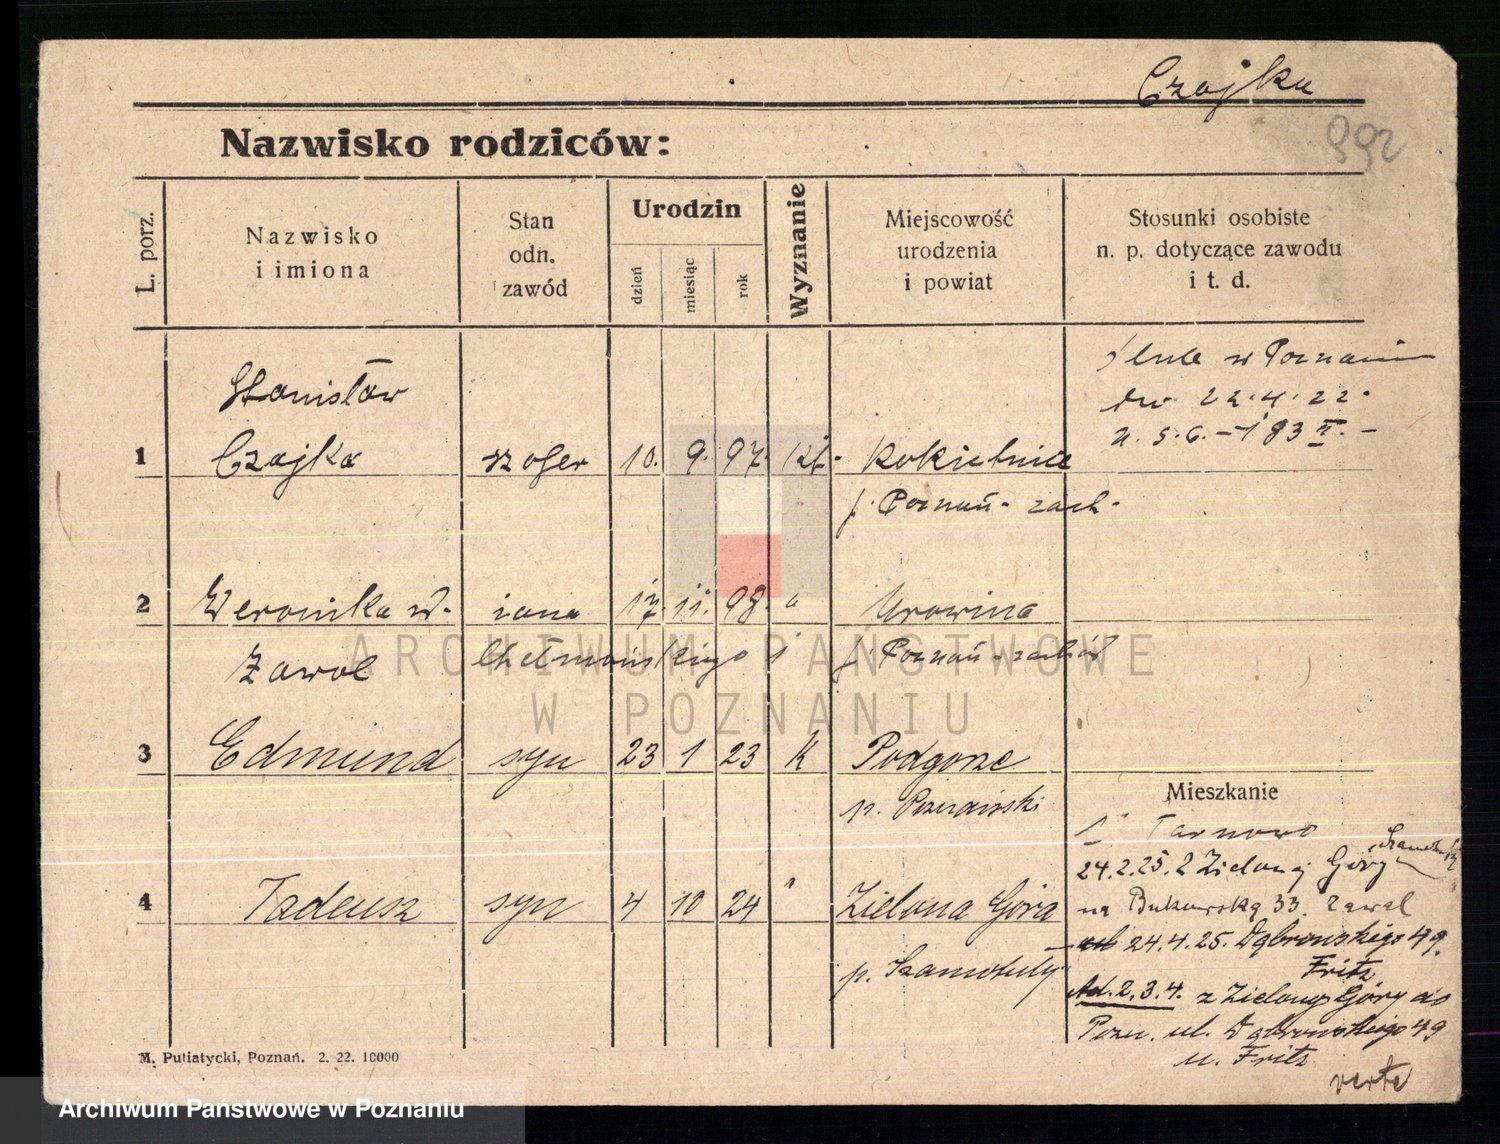 Czajka
992
Nazwisko rodziców:
L. porz.
Nazwisko
i imiona
Stan
odn.
zawód
Urodzin
dzień
miesiąc
rok
Wyznanie
Miejscowość
urodzenia
i powiat
Stosunki osobiste
n. p. dotyczące zawodu
i t. d.
w Poznaniu
22.4.22.
Stanisław
1 Czajka szofer 10. 9. 97. kt. Rokietnica
p. Poznań - zach.
n. 5.6. - 183 II. -
2 Weronika 17. 11. 98.
Zawol Chełmońskiego p. Poznań-zach
3 Edmund syn 23 1 23 K Podgorze
p. Poznański
Mieszkanie
Tarnowo
24.2.25. z Zielonej Góry
4 Tadeusz syn 4 10 24 " Zielona Góra
p. Szamotuły
na Bukowską 33. Zawal
24.4.25. Dąbrowskiego 49.
Fritz
Ad. 2. 3. 4. z Zielonej Góry do
Pozn. ul. Dąbrowskiego 49
u. Fritz
verte
M. Putiatycki, Poznań. 2. 22. 10000
ARCHIWUM PAŃSTWOWE
W POZNANIU
Archiwum Państwowe w Poznaniu